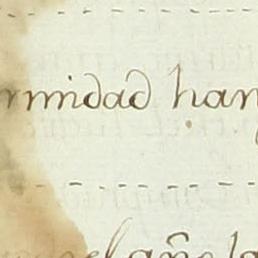 rmidad han
el año la